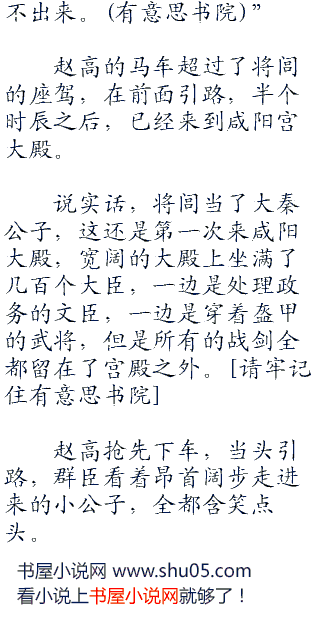 不出来。(有意思书院)”
赵高的马车超过了将闾
的座驾，在前面引路，半个
时辰之后，已经来到咸阳宫
大殿。
说实话，将闾当了大秦
公子，这还是第一次来咸阳
大殿，宽阔的大殿上坐满了
几百个大臣，一边是处理政
务的文臣，一边是穿着盔甲
的武将，但是所有的战剑全
都留在了宫殿之外。[请牢记
住有意思书院]
赵高抢先下车，当头引
路，群臣看着昂首阔步走进
来的小公子，全都含笑点
头。
书屋小说网 www.shu05.com
看小说上书屋小说网就够了！